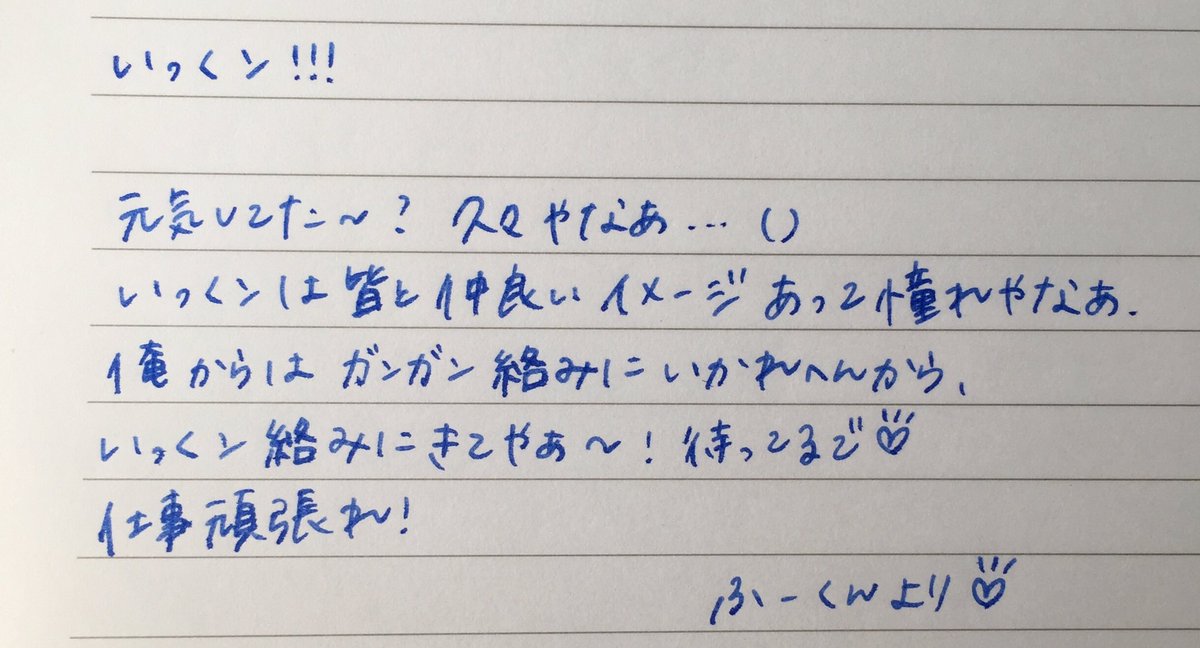 いっくン!!!
元気してた〜? 久々やなぁ… ()
いっくンは皆と仲良いイメージあって憧れやなぁ.
俺からはガンガン絡みにいかれへんから、
いっくン絡みにきてやぁ〜! 待ってるで♡
仕事頑張れ!
ふーくんより♡